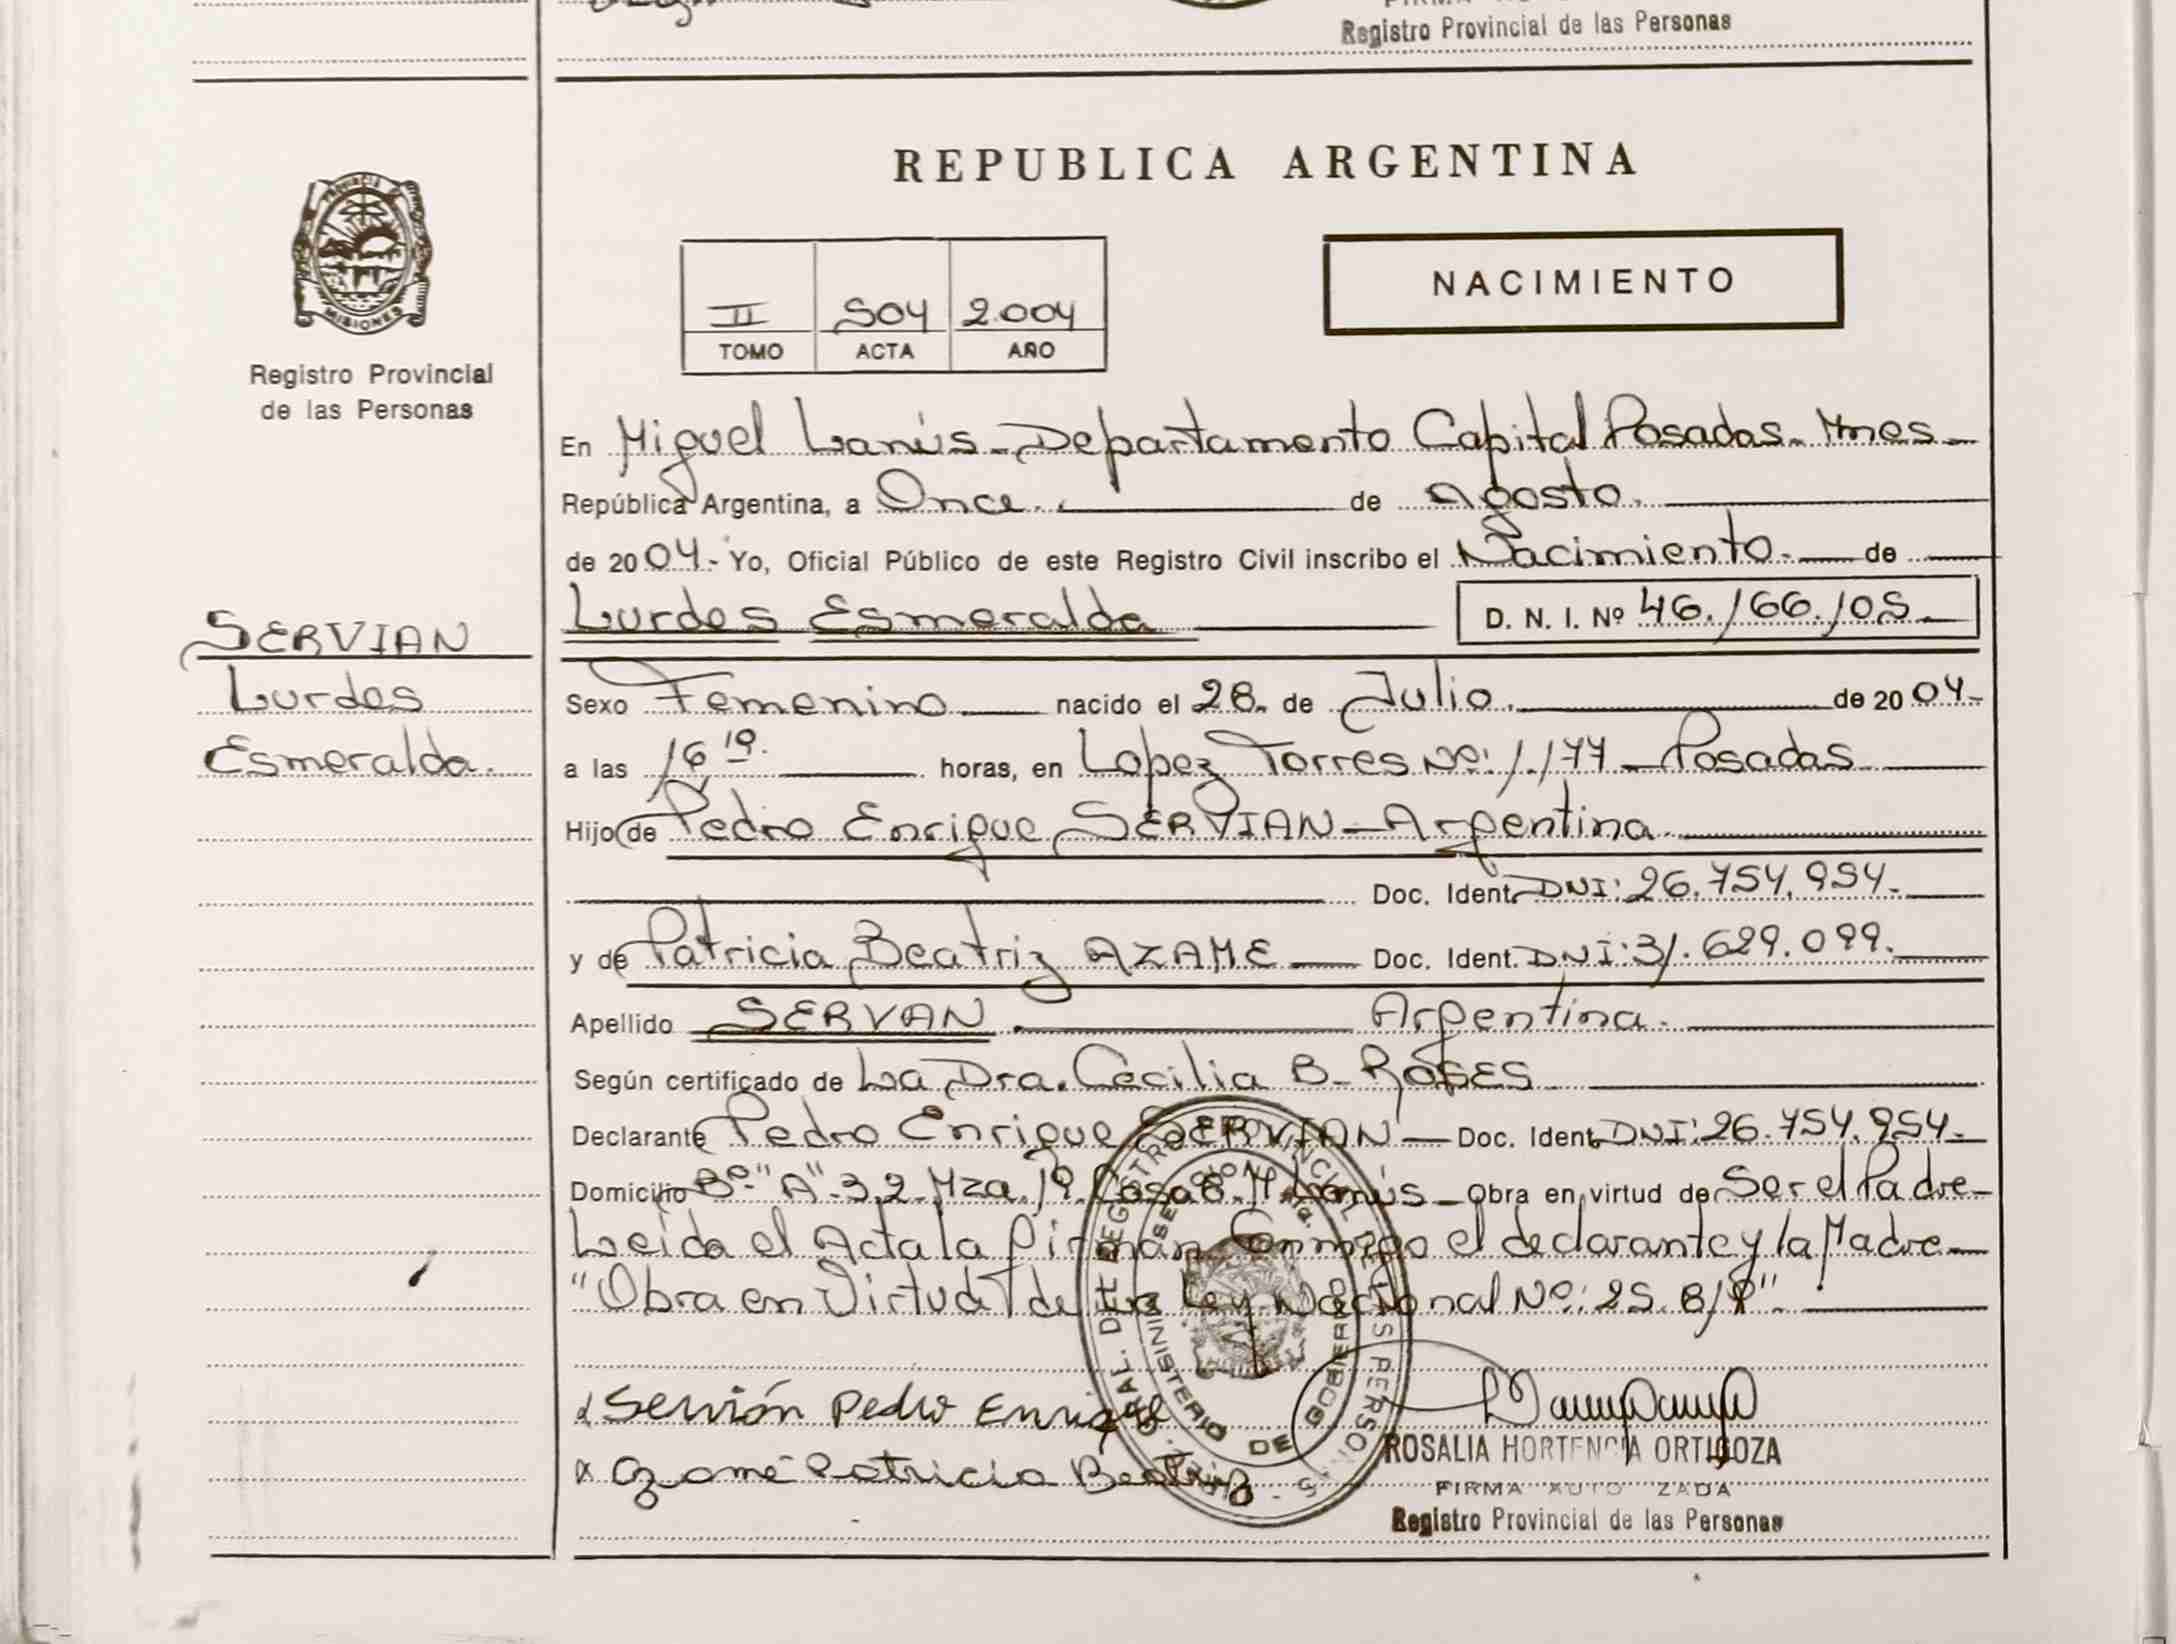 Registro Provincial de las Personas
PROVINCIA DE
MISIONES
Registro Provincial
de las Personas
SERVIAN
Lurdes
Esmeralda.
REPUBLICA ARGENTINA
II 504 2.004
TOMO ACTA AÑO
NACIMIENTO
En Miguel Lanús - Departamento Capital Posadas - Mnes -
República Argentina, a Once. de Agosto.
de 2004.- Yo, Oficial Público de este Registro Civil inscribo el Nacimiento. de
Lurdes Esmeralda D. N. I. Nº 46.166.105.
Sexo Femenino nacido el 28. de Julio. de 2004.-
a las 16 19. horas, en Lopez Torres Nº: 1.177 - Posadas
Hijo de Pedro Enrique SERVIAN - Argentina
Doc. Ident. DNI: 26.754.954.-
y de Patricia Beatriz AZAME Doc. Ident. DNI: 31.629.099.
Apellido SERVAN. Argentina.
Según certificado de La Dra. Cecilia B.
Declarante Pedro Enrique SERVIAN - Doc. Ident. DNI: 26.754.954.-
Domicilio Bº "A" 3.2 Mza. 19. Casa 8. M. Lanús - Obra en virtud de Ser el Padre -
Leida el Acta la Firman Conmigo el declarante y la Madre -
"Obra en Virtud de la Ley Nacional Nº: 25.819".
Servián Pedro Enrique
Azamé Patricia Beatriz
GRAL. DE REGISTRO PROVINCIAL DE LAS PERSONAS
MINISTERIO DE GOBIERNO
ROSALIA HORTENCIA ORTIGOZA
FIRMA AUTORIZADA
Registro Provincial de las Personas